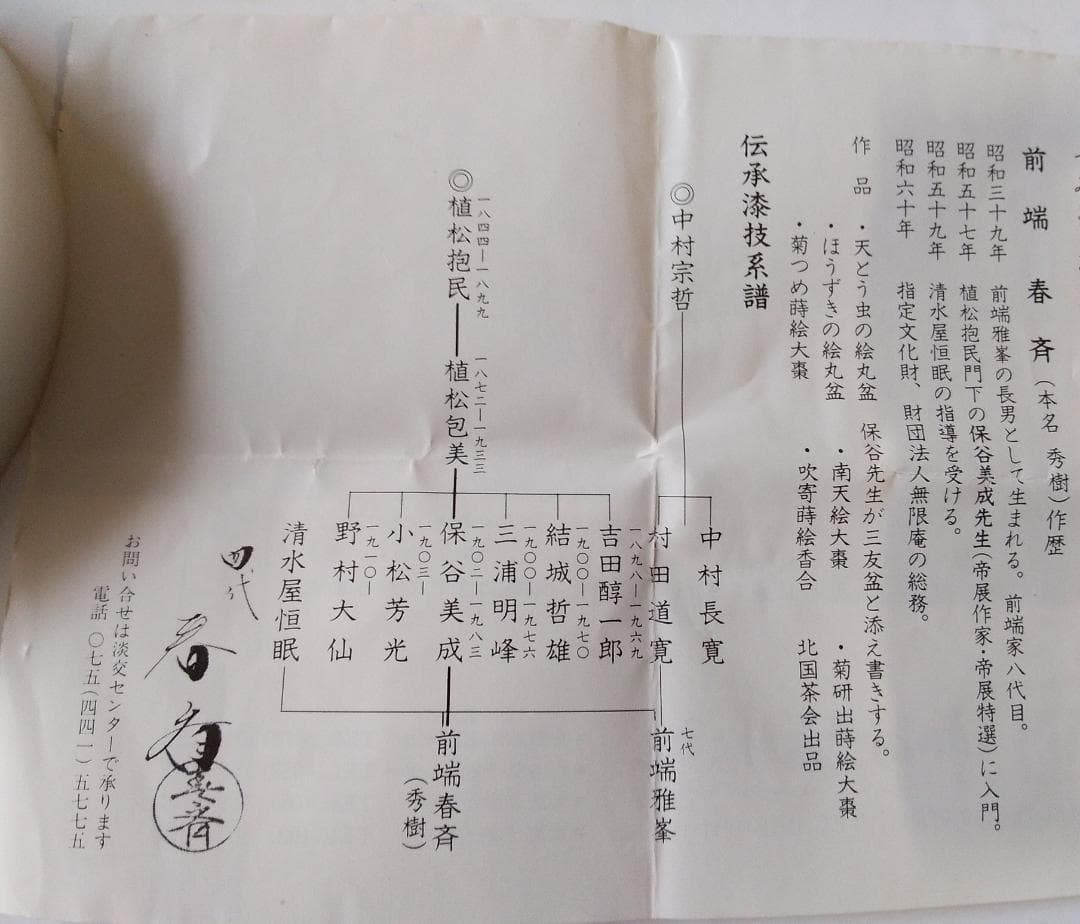 前端春斉（本名 秀樹）作歴
昭和三十九年 前端雅峯の長男として生まれる。前端家八代目。
昭和五十七年 植松抱民門下の保谷美成先生（帝展作家・帝展特選）に入門。
昭和五十九年 清水屋恒眠の指導を受ける。
昭和六十年 指定文化財、財団法人無限庵の総務。
作品 ・天とう虫の絵丸盆 保谷先生が三友盆と添え書きする。
・ほうずきの絵丸盆 ・南天絵大棗 ・菊研出蒔絵大棗
・菊つめ蒔絵大棗 ・吹寄蒔絵香合 北国茶会出品
伝承漆技系譜
◎中村宗哲
中村長寛
村田道寛
七代
前端雅峯
一八四四―一八九九
◎植松抱民
一八七二―一九三三
植松包美
一八九八―一九六九
吉田醇一郎
一九〇〇―一九七〇
結城哲雄
一九〇〇―一九七六
三浦明峰
一九〇二―一九八三
保谷美成
一九〇三―
小松芳光
一九一〇―
野村大仙
清水屋恒眠
前端春斉
（秀樹）
春斉
お問い合せは淡交センターで承ります
電話 〇七五（四四一）五七七五